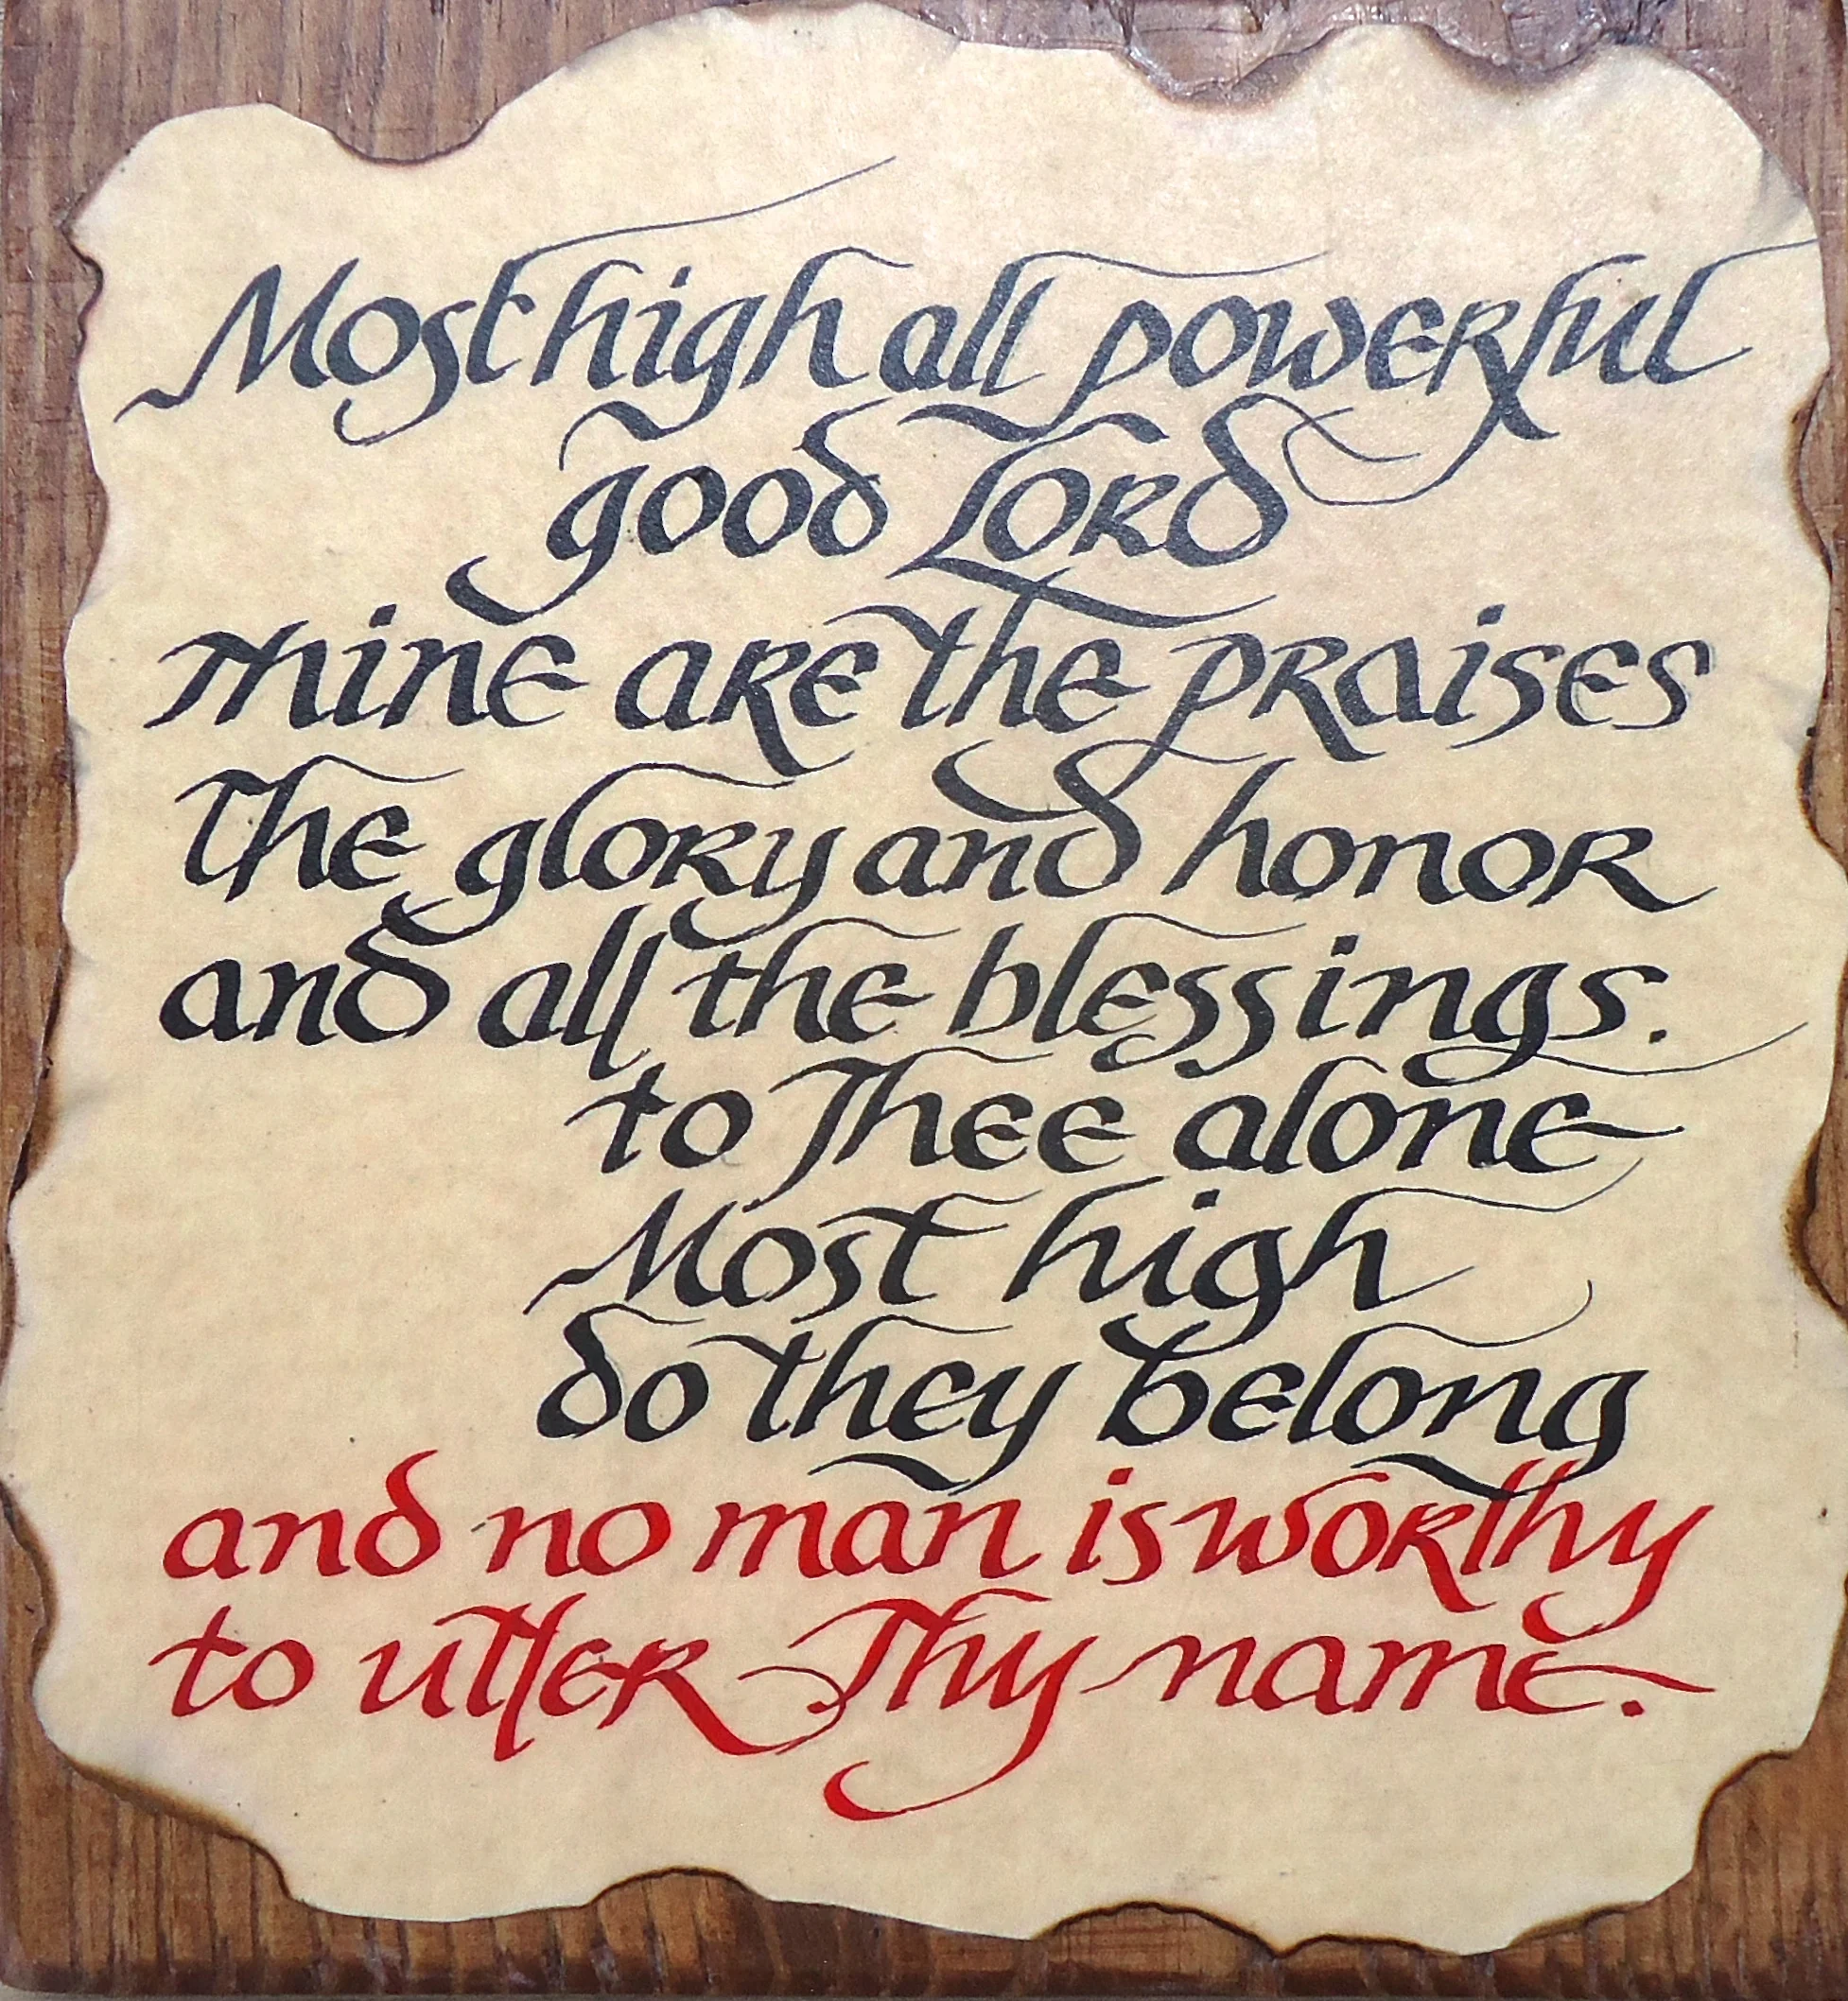 Most high all powerful
good Lord
mine are the praises
The glory and honor
and all the blessings.
to Thee alone
Most high
do they belong
and no man is worthy
to utter Thy name.